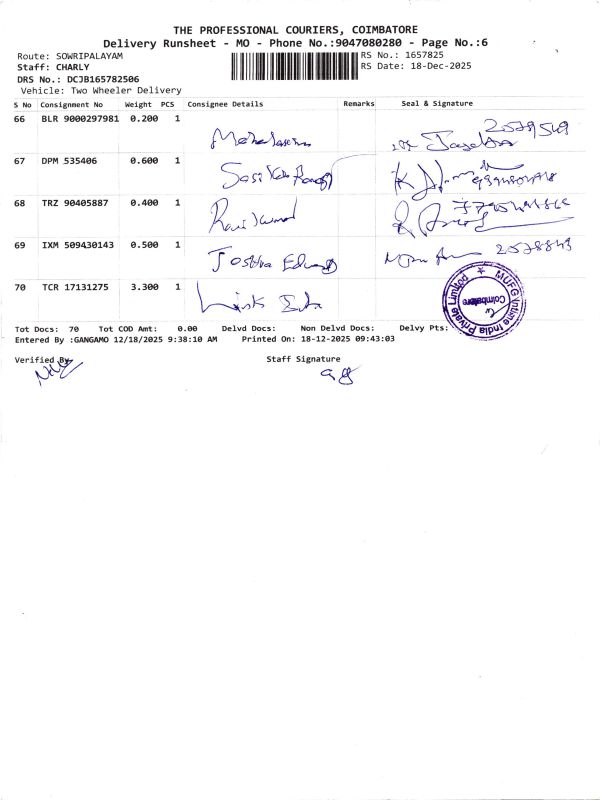 THE PROFESSIONAL COURIERS, COIMBATORE
Delivery Runsheet - MO - Phone No.:9047080280 - Page No.:6
Route: SOWRIPALAYAM
RS No.: 1657825
Staff: CHARLY
RS Date: 18-Dec-2025
DRS No.: DCJB165782506
Vehicle: Two Wheeler Delivery
S No Consignment No Weight PCS Consignee Details Remarks Seal & Signature
66 BLR 9000297981 0.200 1
67 DPM 535406 0.600 1
68 TRZ 90405887 0.400 1
69 IXM 509430143 0.500 1 Joshva
70 TCR 17131275 3.300 1
MUFG Intime India Private Limited
Coimbatore
Tot Docs: 70 Tot COD Amt: 0.00 Delvd Docs: Non Delvd Docs: Delvy Pts:
Entered By :GANGAMO 12/18/2025 9:38:10 AM Printed On: 18-12-2025 09:43:03
Verified By
Staff Signature